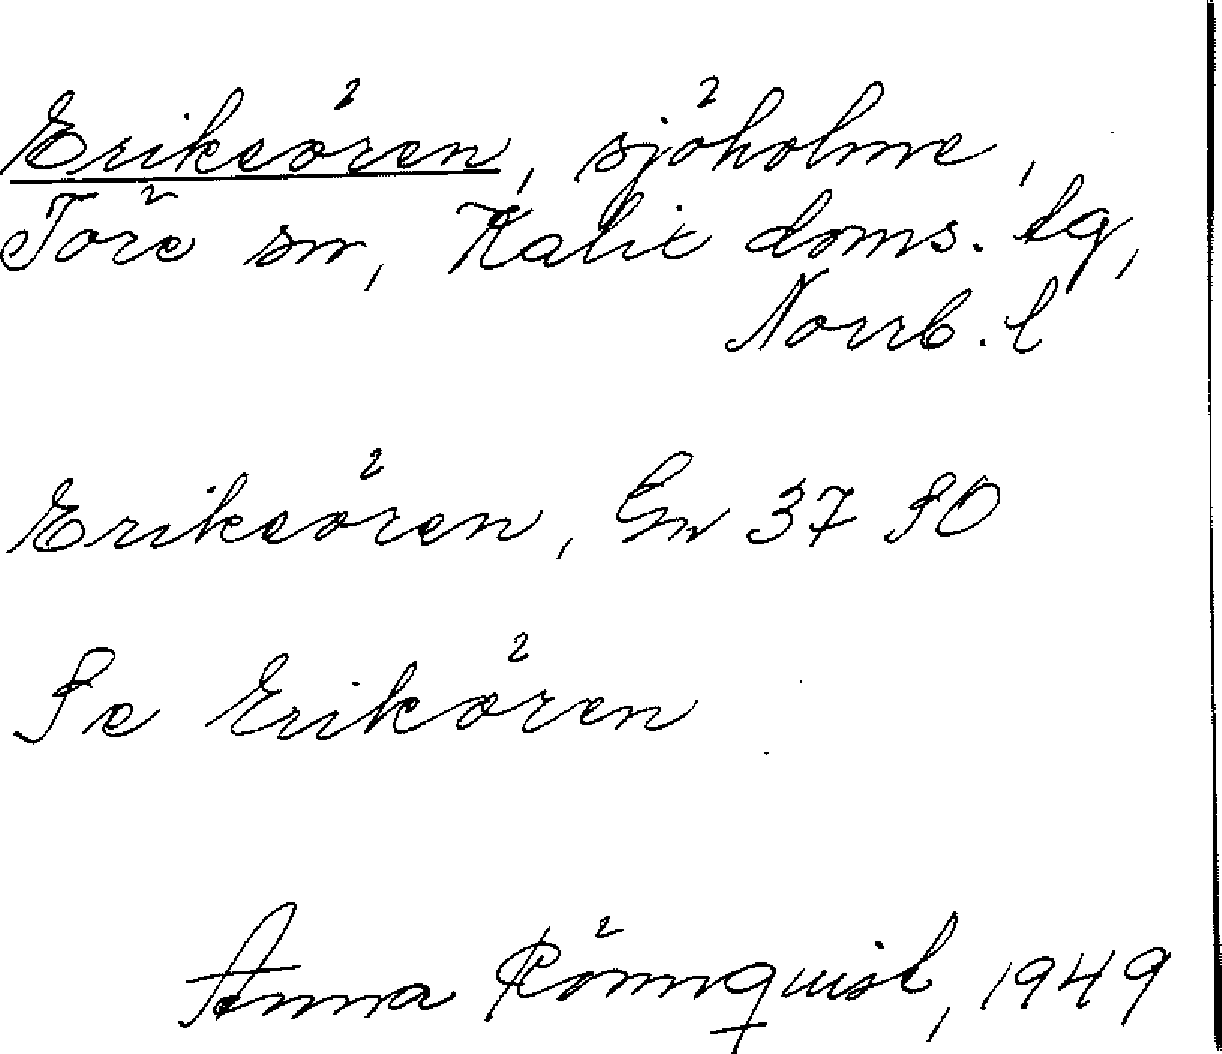 Eriksören, sjöholme,
Töre sn, Kalix doms. tg,
Norrb. l
Eriksören, Gn 37 SO
Se Erikören
Anna Rönnquist, 1949